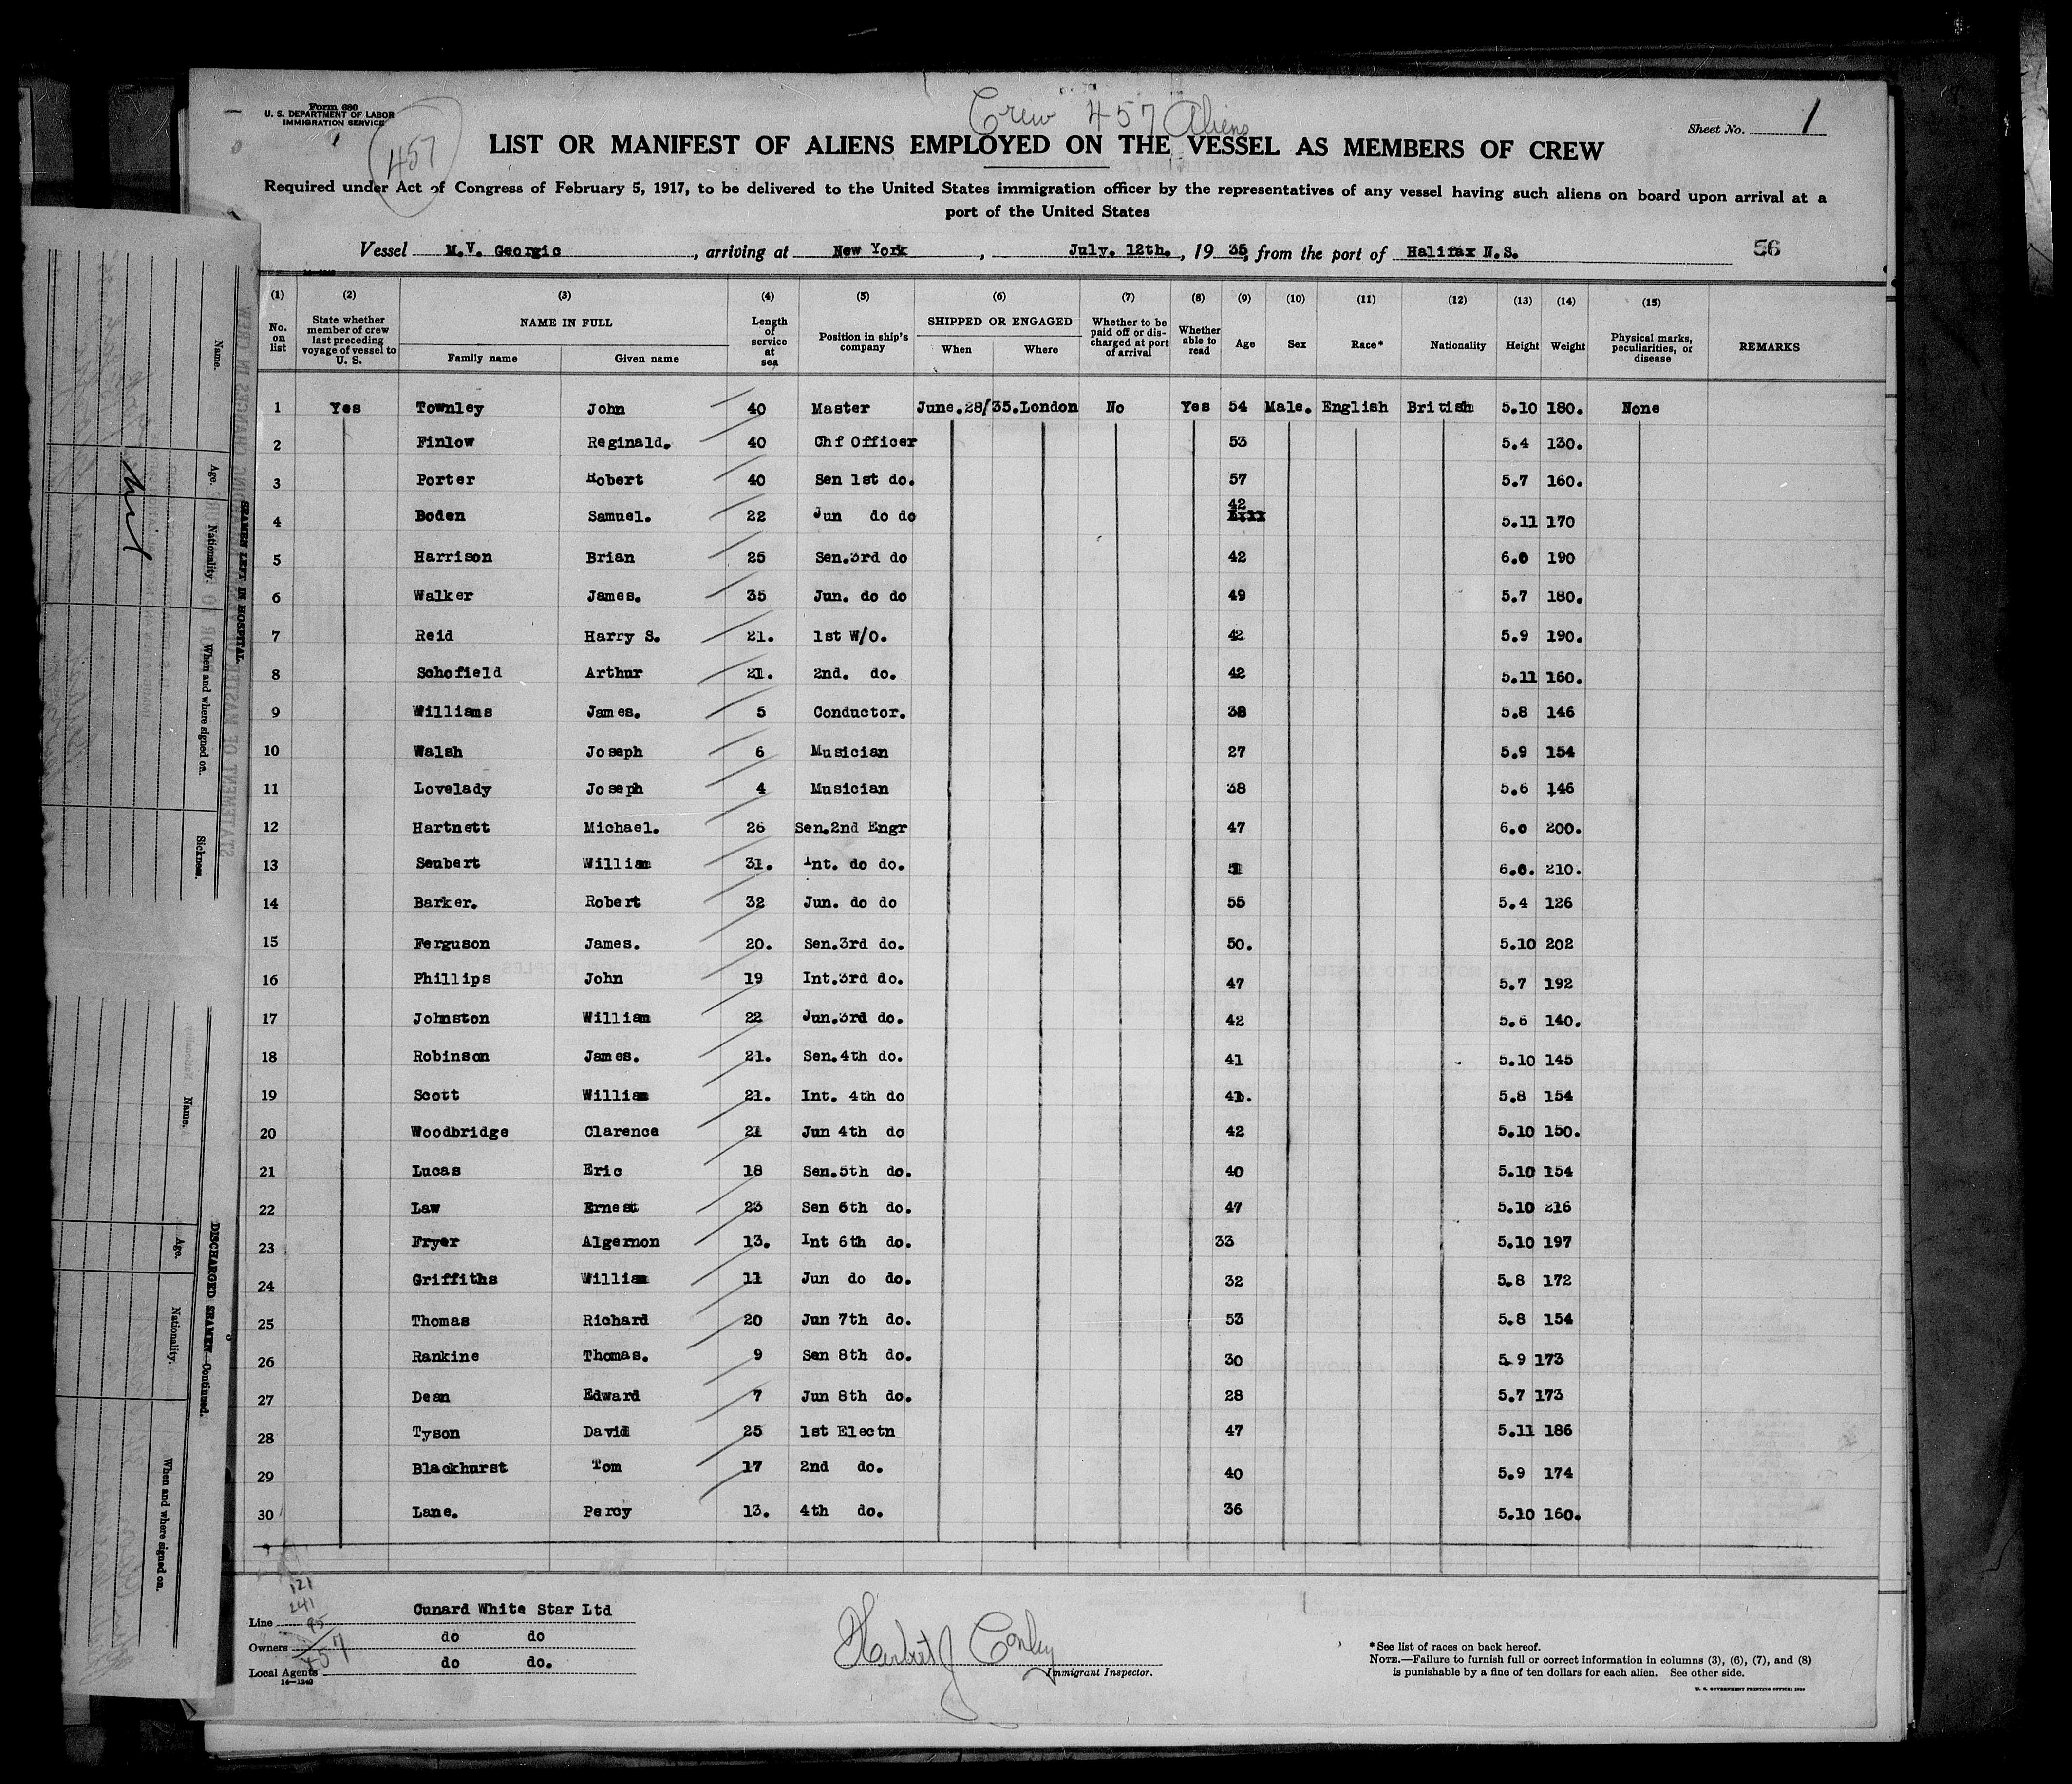 Form 680
U. S. DEPARTMENT OF LABOR
IMMIGRATION SERVICE
457
Crew 457 Aliens
Sheet No. 1
LIST OR MANIFEST OF ALIENS EMPLOYED ON THE VESSEL AS MEMBERS OF CREW
Required under Act of Congress of February 5, 1917, to be delivered to the United States immigration officer by the representatives of any vessel having such aliens on board upon arrival at a
port of the United States
Vessel M.V. Georgic, arriving at New York, July. 12th., 1935, from the port of Halifax N.S. 56
(1) (2) (3) (4) (5) (6) (7) (8) (9) (10) (11) (12) (13) (14) (15)
No. on list | State whether member of crew last preceding voyage of vessel to U. S. | NAME IN FULL | Family name | Given name | Length of service at sea | Position in ship's company | SHIPPED OR ENGAGED | When | Where | Whether to be paid off or discharged at port of arrival | Whether able to read | Age | Sex | Race* | Nationality | Height | Weight | Physical marks, peculiarities, or disease | REMARKS
1 Yes Townley John 40 Master June.28/35.London No Yes 54 Male. English British 5.10 180. None
2 Finlow Reginald. 40 Chf Officer 53 5.4 130.
3 Porter Robert 40 Sen 1st do. 57 5.7 160.
4 Boden Samuel. 22 Jun do do 42 5.11 170
5 Harrison Brian 25 Sen.3rd do 42 6.0 190
6 Walker James. 35 Jun. do do 49 5.7 180.
7 Reid Harry S. 21. 1st W/O. 42 5.9 190.
8 Schofield Arthur 21. 2nd. do. 42 5.11 160.
9 Williams James. 5 Conductor. 38 5.8 146
10 Walsh Joseph 6 Musician 27 5.9 154
11 Lovelady Joseph 4 Musician 38 5.6 146
12 Hartnett Michael. 26 Sen.2nd Engr 47 6.0 200.
13 Seubert William 31. Int. do do. 51 6.0. 210.
14 Barker. Robert 32 Jun. do do 55 5.4 126
15 Ferguson James. 20. Sen.3rd do. 50. 5.10 202
16 Phillips John 19 Int.3rd do. 47 5.7 192
17 Johnston William 22 Jun.3rd do. 42 5.6 140.
18 Robinson James. 21. Sen.4th do. 41 5.10 145
19 Scott William 21. Int. 4th do 41. 5.8 154
20 Woodbridge Clarence 21 Jun 4th do 42 5.10 150.
21 Lucas Eric 18 Sen.5th do. 40 5.10 154
22 Law Ernest 23 Sen 6th do. 47 5.10 216
23 Fryer Algernon 13. Int 6th do. 33 5.10 197
24 Griffiths William 11 Jun do do. 32 5.8 172
25 Thomas Richard 20 Jun 7th do. 53 5.8 154
26 Rankine Thomas. 9 Sen 8th do. 30 5.9 173
27 Dean Edward 7 Jun 8th do. 28 5.7 173
28 Tyson David 25 1st Electn 47 5.11 186
29 Blackhurst Tom 17 2nd do. 40 5.9 174
30 Lane. Percy 13. 4th do. 36 5.10 160.
121
241
95
457
Line Cunard White Star Ltd
Owners do do
Local Agents do do.
14—1240
Herbert J Conley
Immigrant Inspector.
*See list of races on back hereof.
NOTE.—Failure to furnish full or correct information in columns (3), (6), (7), and (8)
is punishable by a fine of ten dollars for each alien. See other side.
U. S. GOVERNMENT PRINTING OFFICE:
SEAMEN LEFT IN HOSPITAL
Name. Age. Nationality. When and where signed on. Sickness.
DISCHARGED SEAMEN—Continued.
Name. Age. Nationality. When and where signed on.